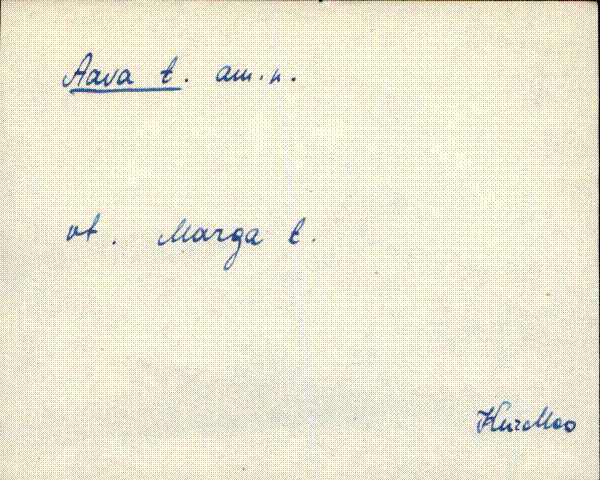 Aava t. am.n.
vt. Marga t.
KurMoo